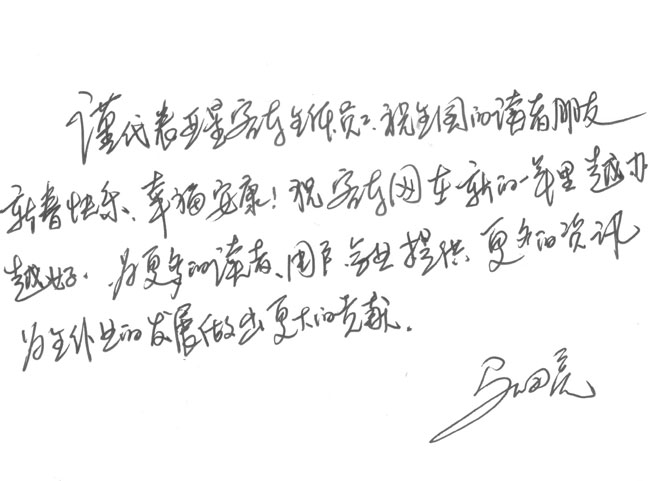 谨代表亚星客车全体员工、祝全国的读者朋友
新春快乐、幸福安康！祝客车网在新的一年里越办
越好．为更多的读者、用户、企业提供更多的资讯
为全行业的发展做出更大的贡献．